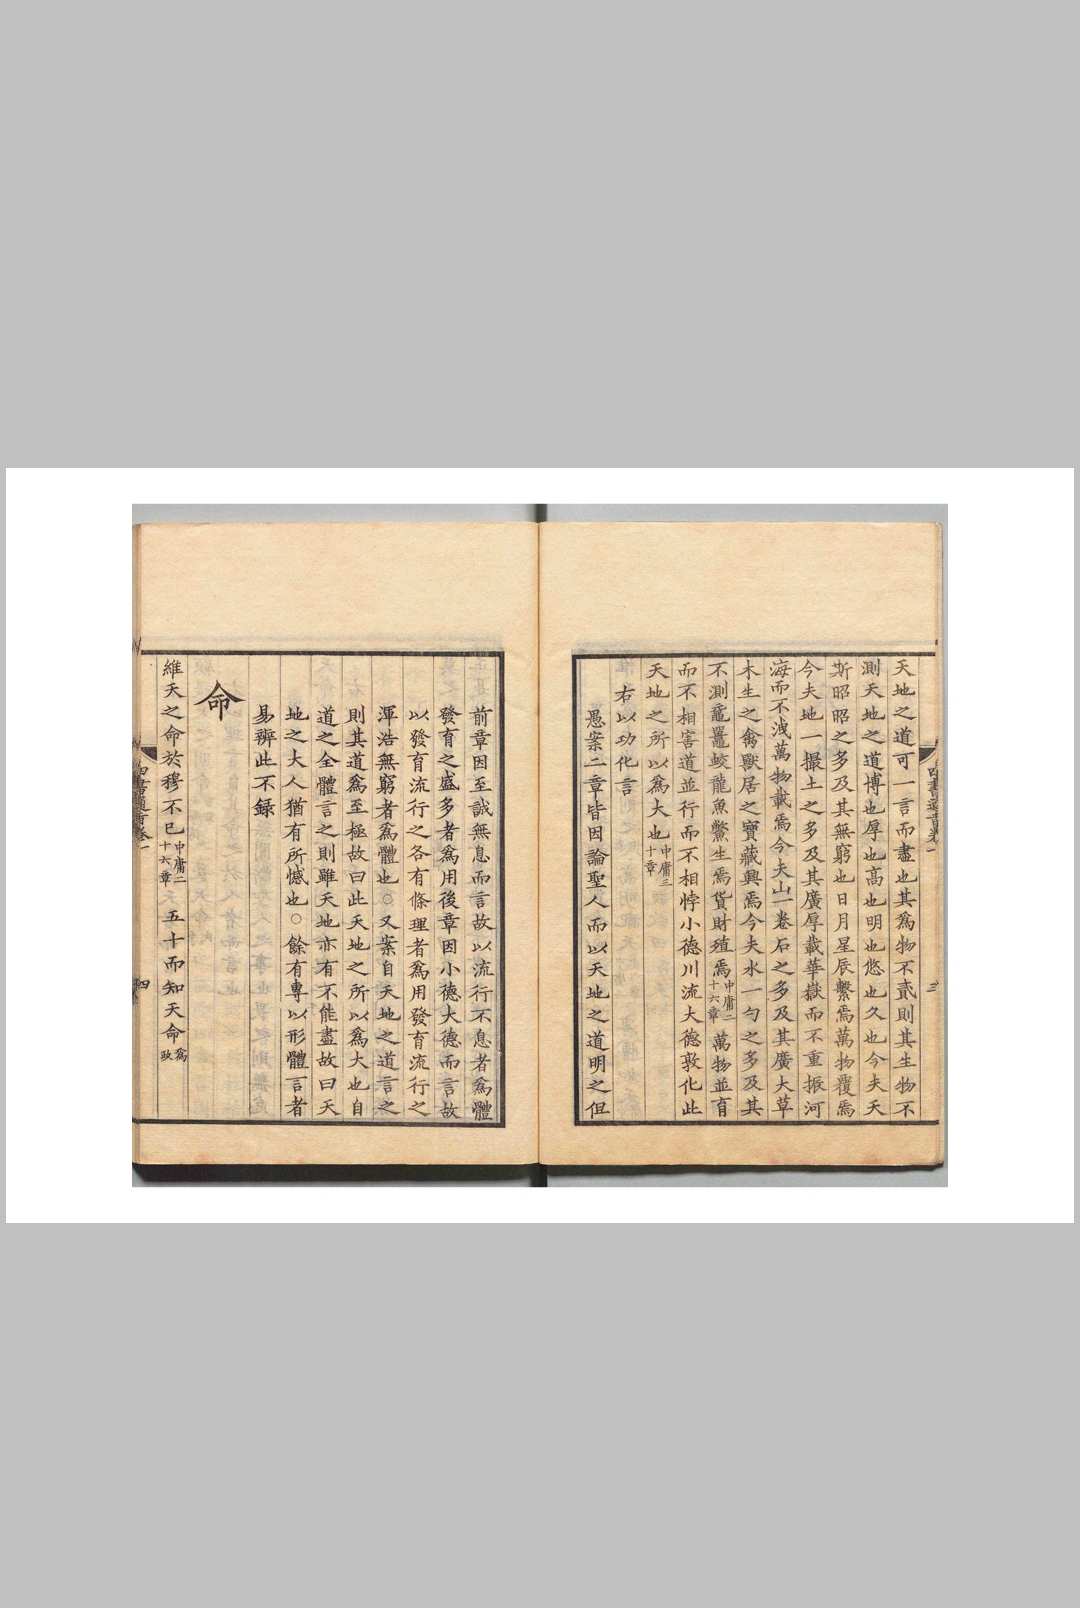 天地之道可一言而盡也其爲物不貳則其生物不
測天地之道博也厚也高也明也悠也久也今夫天
斯昭昭之多及其無窮也日月星辰繫焉萬物覆焉
今夫地一撮土之多及其廣厚載華嶽而不重振河
海而不洩萬物載焉今夫山一卷石之多及其廣大草
木生之禽獸居之寶藏興焉今夫水一勺之多及其
不測黿鼉蛟龍魚鱉生焉貨財殖焉中庸二十六章萬物並育
而不相害道並行而不相悖小德川流大德敦化此
天地之所以爲大也中庸三十章
右以功化言
愚案二章皆因論聖人而以天地之道明之但
四書通旨卷一
三
前章因至誠無息而言故以流行不息者爲體
發育之盛多者爲用後章因小德大德而言故
以發育流行之各有條理者爲用發育流行之
渾浩無窮者爲體也○又案自天地之道言之
則其道爲至極故曰此天地之所以爲大也自
道之全體言之則雖天地亦有不能盡故曰天
地之大人猶有所憾也○餘有專以形體言者
易辨此不錄
命
維天之命於穆不已中庸二十六章五十而知天命爲政
四書通旨卷一
四